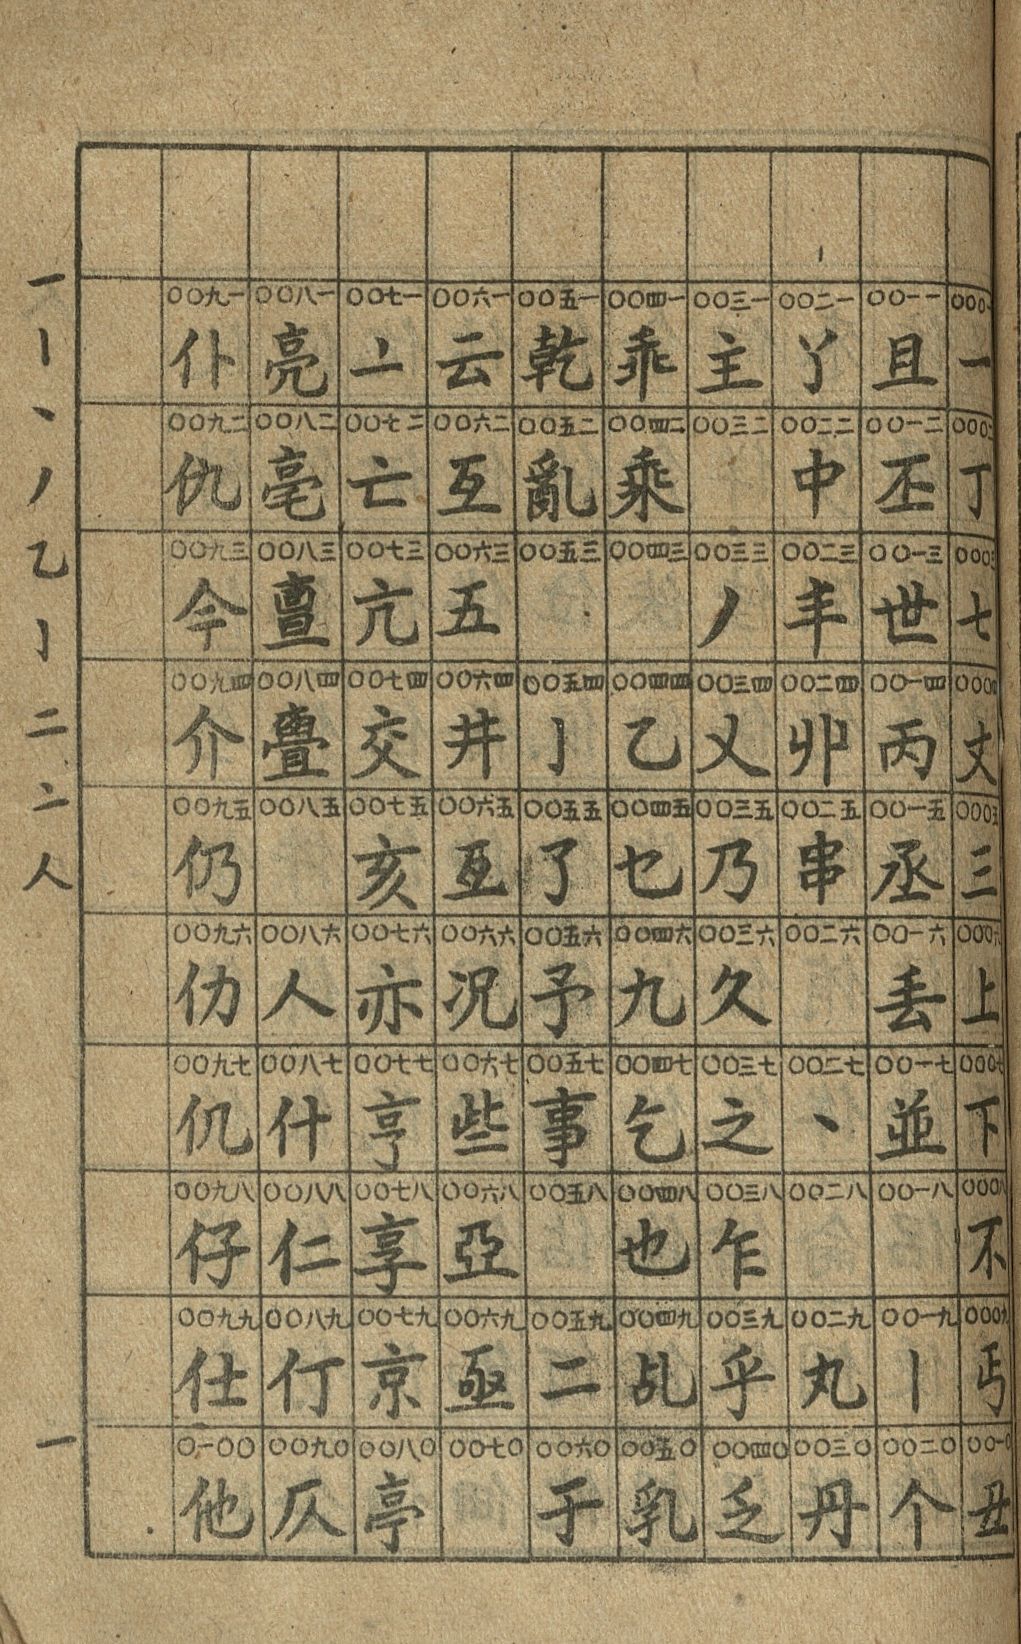 〇〇〇一 一
〇〇〇二 丁
〇〇〇三 七
〇〇〇四 丈
〇〇〇五 三
〇〇〇六 上
〇〇〇七 下
〇〇〇八 不
〇〇〇九 丐
〇〇一〇 丑
〇〇一一 且
〇〇一二 丕
〇〇一三 世
〇〇一四 丙
〇〇一五 丞
〇〇一六 丢
〇〇一七 並
〇〇一八
〇〇一九 丨
〇〇二〇 个
〇〇二一 丫
〇〇二二 中
〇〇二三 丰
〇〇二四 丱
〇〇二五 串
〇〇二六
〇〇二七 丶
〇〇二八
〇〇二九 丸
〇〇三〇 丹
〇〇三一 主
〇〇三二
〇〇三三 丿
〇〇三四 乂
〇〇三五 乃
〇〇三六 久
〇〇三七 之
〇〇三八 乍
〇〇三九 乎
〇〇四〇 乏
〇〇四一 乖
〇〇四二 乘
〇〇四三
〇〇四四 乙
〇〇四五 乜
〇〇四六 九
〇〇四七 乞
〇〇四八 也
〇〇四九 乩
〇〇五〇 乳
〇〇五一 乾
〇〇五二 亂
〇〇五三
〇〇五四 亅
〇〇五五 了
〇〇五六 予
〇〇五七 事
〇〇五八
〇〇五九 二
〇〇六〇 于
〇〇六一 云
〇〇六二 互
〇〇六三 五
〇〇六四 井
〇〇六五 亙
〇〇六六 况
〇〇六七 些
〇〇六八 亞
〇〇六九 亟
〇〇七〇
〇〇七一 亠
〇〇七二 亡
〇〇七三 亢
〇〇七四 交
〇〇七五 亥
〇〇七六 亦
〇〇七七 亨
〇〇七八 享
〇〇七九 京
〇〇八〇 亭
〇〇八一 亮
〇〇八二 亳
〇〇八三 亶
〇〇八四 亹
〇〇八五
〇〇八六 人
〇〇八七 什
〇〇八八 仁
〇〇八九 仃
〇〇九〇 仄
〇〇九一 仆
〇〇九二 仇
〇〇九三 今
〇〇九四 介
〇〇九五 仍
〇〇九六 仂
〇〇九七 仉
〇〇九八 仔
〇〇九九 仕
〇一〇〇 他
一丨丶丿乙亅二亠人
一